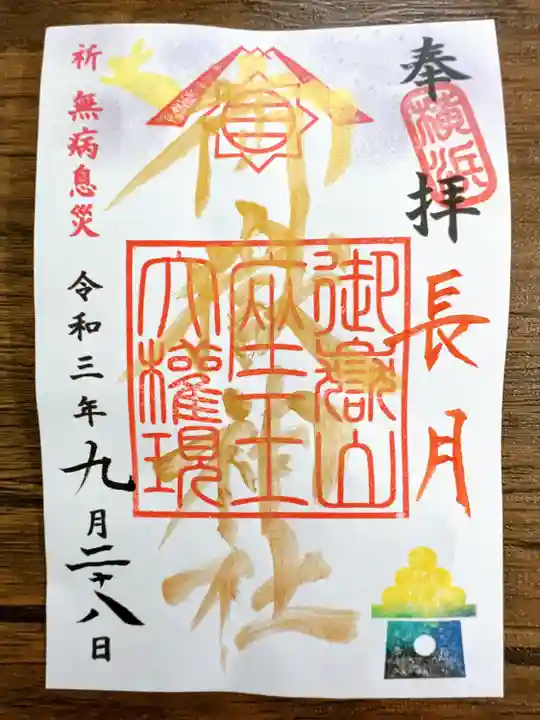 奉拝
横浜
長月
御嶽山
座王
大権現
御嶽神社
祈 無病息災
令和三年九月二十八日